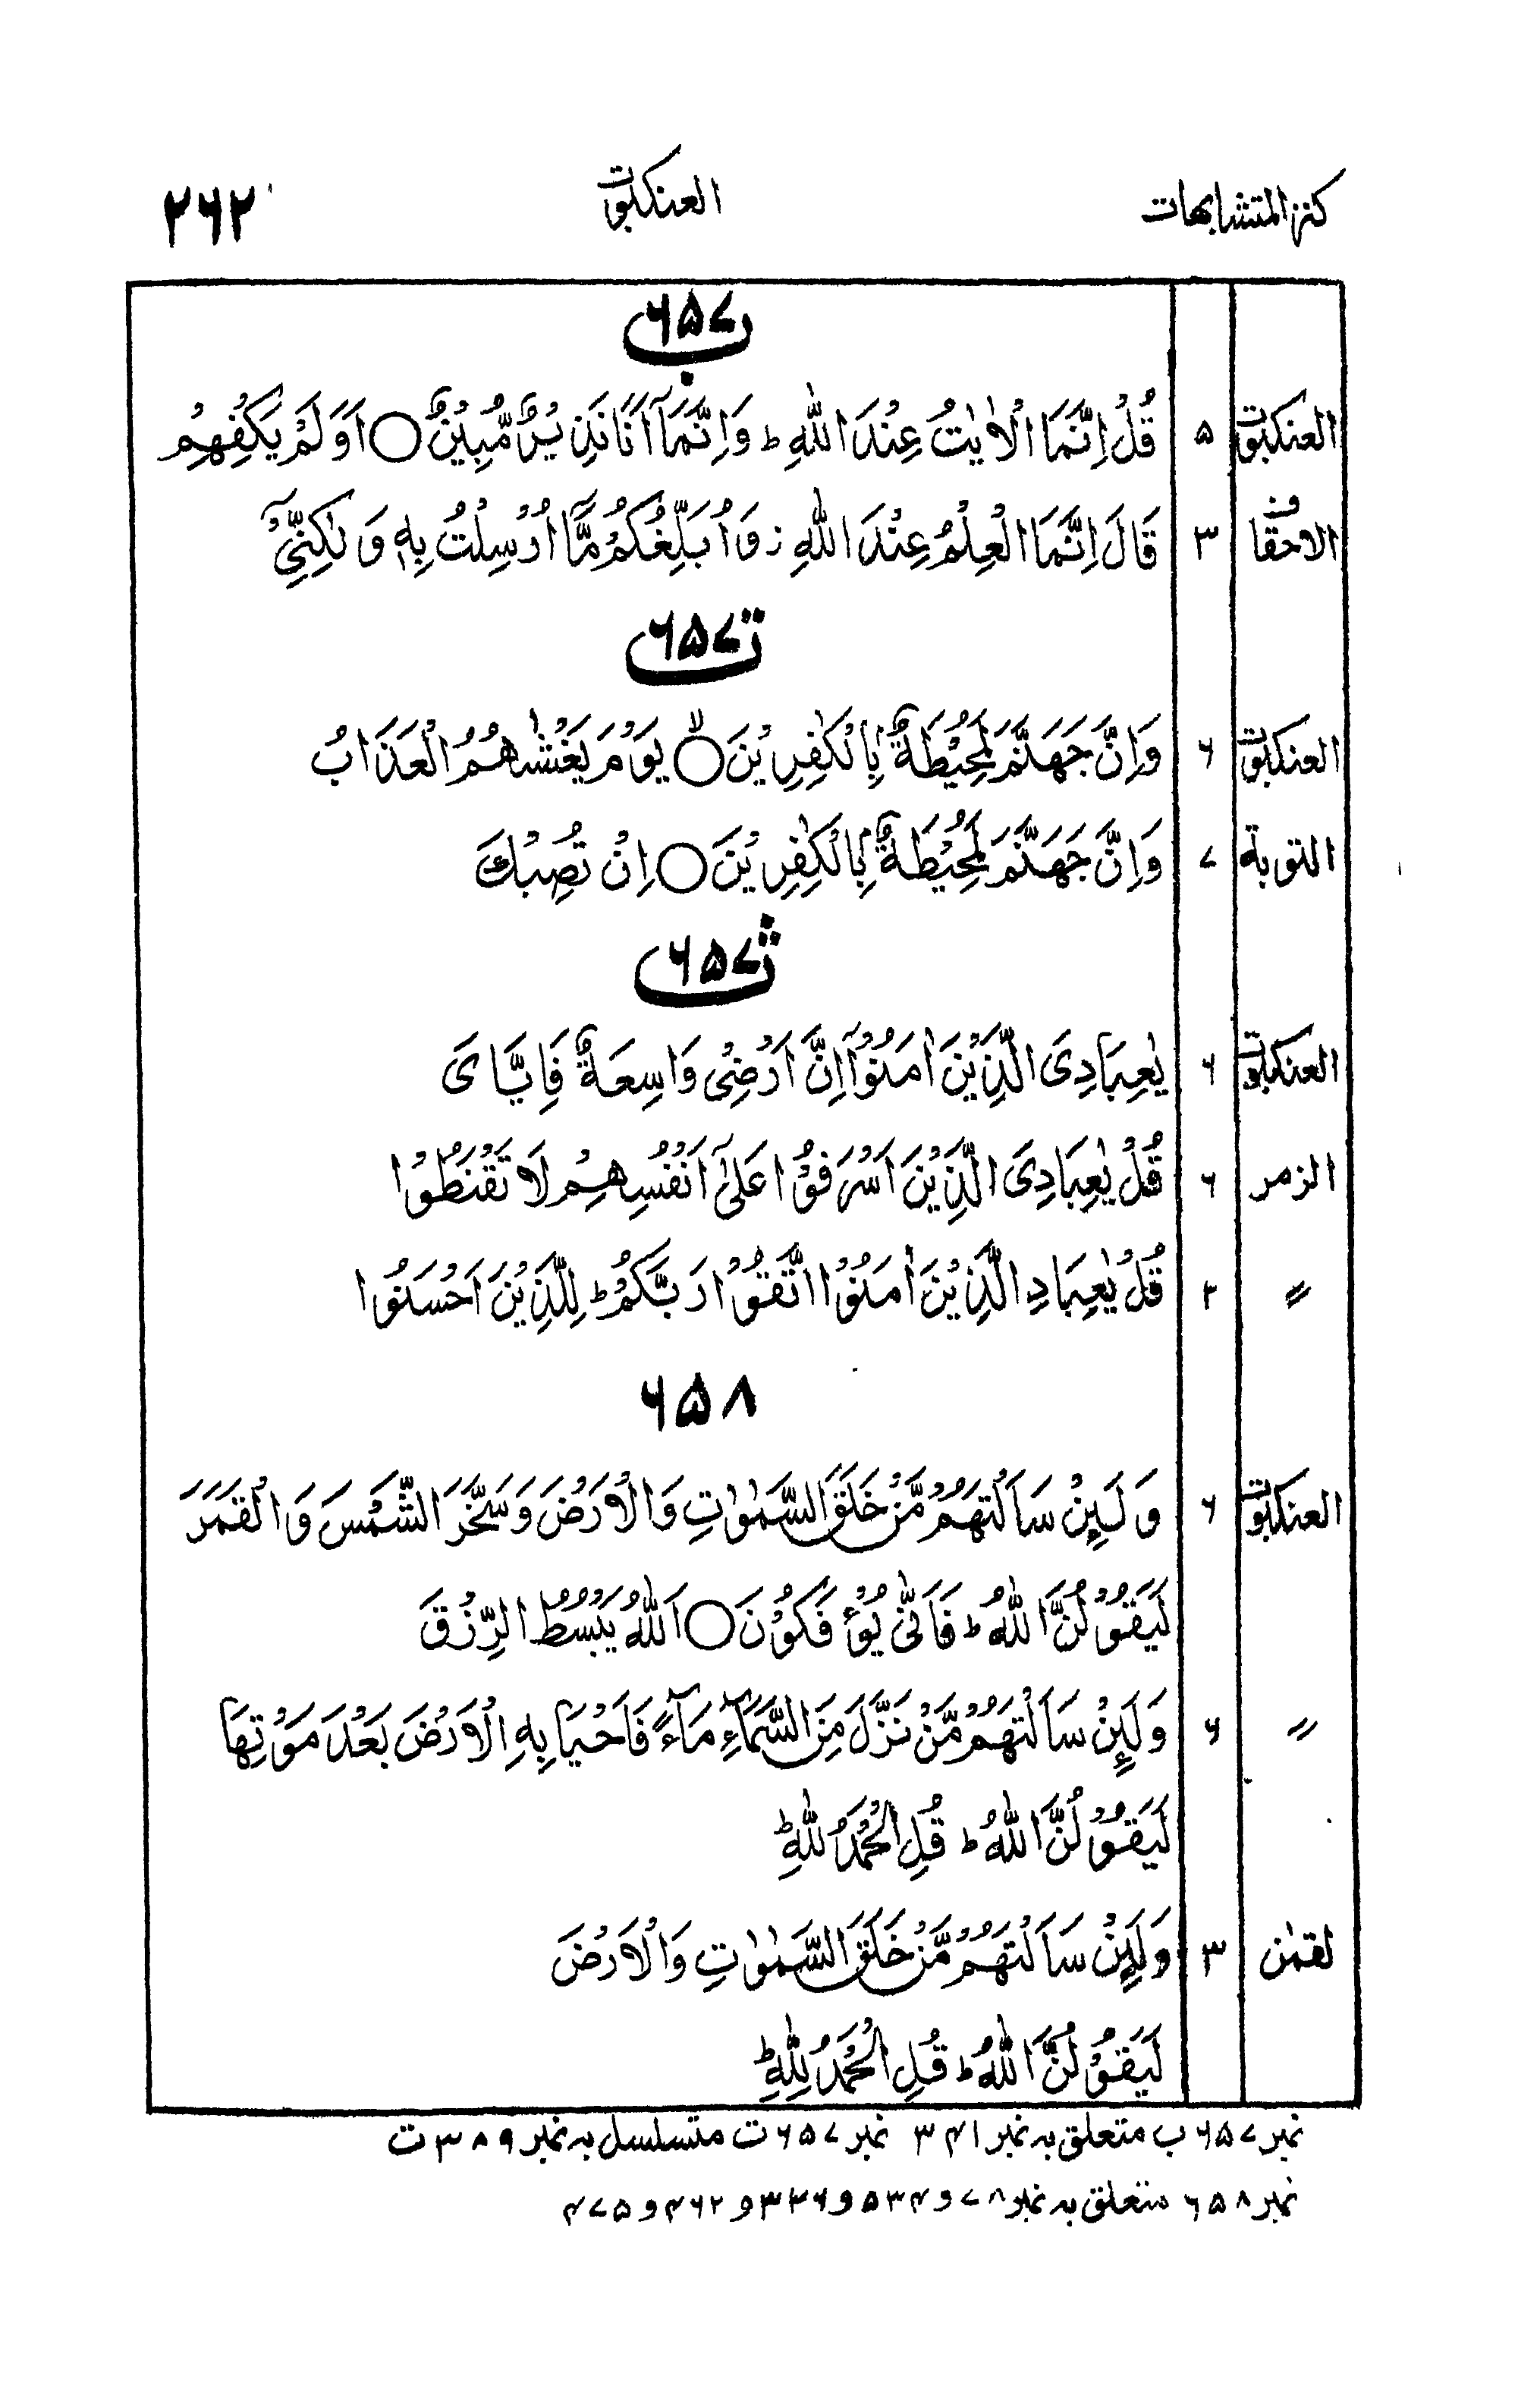 كنز المتشابهات العنكبوت ٢٦٢
٦٥٧ ب
العنكبوت ۵ قُلْ اِنَّمَا الْاٰيٰتُ عِنْدَ اللّٰهِ ؕ وَاِنَّمَآ اَنَا نَذِيْرٌ مُّبِيْنٌ ○ اَوَلَمْ يَكْفِهِمْ
الاحقاف ٣ قَالَ اِنَّمَا الْعِلْمُ عِنْدَ اللّٰهِ ز وَاُبَلِّغُكُمْ مَّآ اُرْسِلْتُ بِهٖ وَلٰكِنِّيْٓ
٦٥٧ ت
العنكبوت ٦ وَاِنَّ جَهَنَّمَ لَمُحِيْطَةٌۢ بِالْكٰفِرِيْنَ ○ۙ يَوْمَ يَغْشٰىهُمُ الْعَذَابُ
التوبة ٧ وَاِنَّ جَهَنَّمَ لَمُحِيْطَةٌۢ بِالْكٰفِرِيْنَ ○ اِنْ تُصِبْكَ
٦٥٧ ث
العنكبوت ٦ يٰعِبَادِىَ الَّذِيْنَ اٰمَنُوْٓا اِنَّ اَرْضِىْ وَاسِعَةٌ فَاِيَّاىَ
الزمر ٦ قُلْ يٰعِبَادِىَ الَّذِيْنَ اَسْرَفُوْا عَلٰٓى اَنْفُسِهِمْ لَا تَقْنَطُوْا
〃 ٢ قُلْ يٰعِبَادِ الَّذِيْنَ اٰمَنُوا اتَّقُوْا رَبَّكُمْ ؕ لِلَّذِيْنَ اَحْسَنُوْا
٦٥٨
العنكبوت ٦ وَلَئِنْ سَاَلْتَهُمْ مَّنْ خَلَقَ السَّمٰوٰتِ وَالْاَرْضَ وَسَخَّرَ الشَّمْسَ وَالْقَمَرَ
لَيَقُوْلُنَّ اللّٰهُ ؕ فَاَنّٰى يُؤْفَكُوْنَ ○ اَللّٰهُ يَبْسُطُ الرِّزْقَ
〃 ٦ وَلَئِنْ سَاَلْتَهُمْ مَّنْ نَزَّلَ مِنَ السَّمَآءِ مَآءً فَاَحْيَا بِهِ الْاَرْضَ بَعْدَ مَوْتِهَا
لَيَقُوْلُنَّ اللّٰهُ ؕ قُلِ الْحَمْدُ لِلّٰهِ ؕ
لقمٰن ٣ وَلَئِنْ سَاَلْتَهُمْ مَّنْ خَلَقَ السَّمٰوٰتِ وَالْاَرْضَ
لَيَقُوْلُنَّ اللّٰهُ ؕ قُلِ الْحَمْدُ لِلّٰهِ ؕ
نمبر ٦۵٧ ب متعلق بہ نمبر ٣۴١ نمبر ٦۵٧ ت متسلسل بہ نمبر ٣٨٩ ت
نمبر ٦۵٨ متعلق بہ نمبر ٧٨ و ۵٣۴ و ٣٣٦ و ۴٦٢ و ۴٧۵